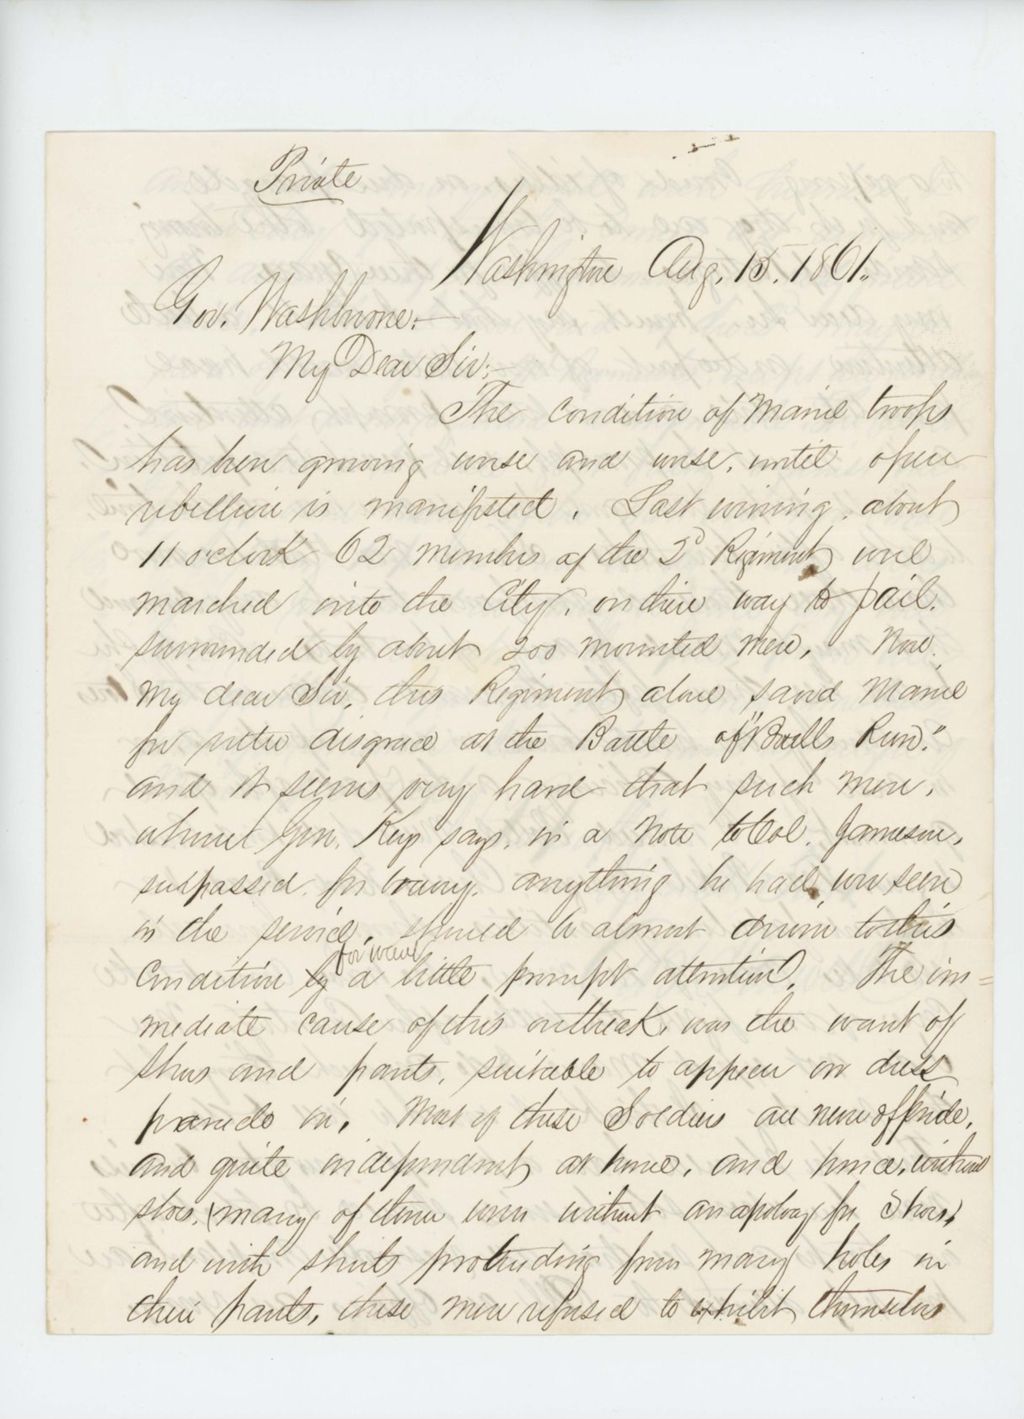 Private
Washington Aug. 15. 1861.
Gov. Washburne:-
My Dear Sir:-
The condition of Maine troops
has been growing worse and worse, until open
rebellion is manifested. Last evening, about
11 oclock 62 members of the 2d Regiment were
marched into the City, on their way to jail,
surrounded by about 200 mounted men. Now,
my dear Sir, this Regiment alone saved Maine
from utter disgrace at the Battle of "Bulls Run."
and it seems very hard that such men,
whom Gen. Keys says, in a note to Col. Jameson,
surpassed, for bravery, anything he had ever seen
in the service, should be almost driven to this
condition
for want
of a little prompt attention. The im=
mediate cause of this outbreak, was the want of
shoes and pants, suitable to appear on dress
parade in. Most of these Soldiers are men of pride,
and quite independent, at home, and hence, without
shoes, (many of them were without an apology for Shoes,)
and with shirts protruding from many holes in
their pants, these men refused to exhibit themselves